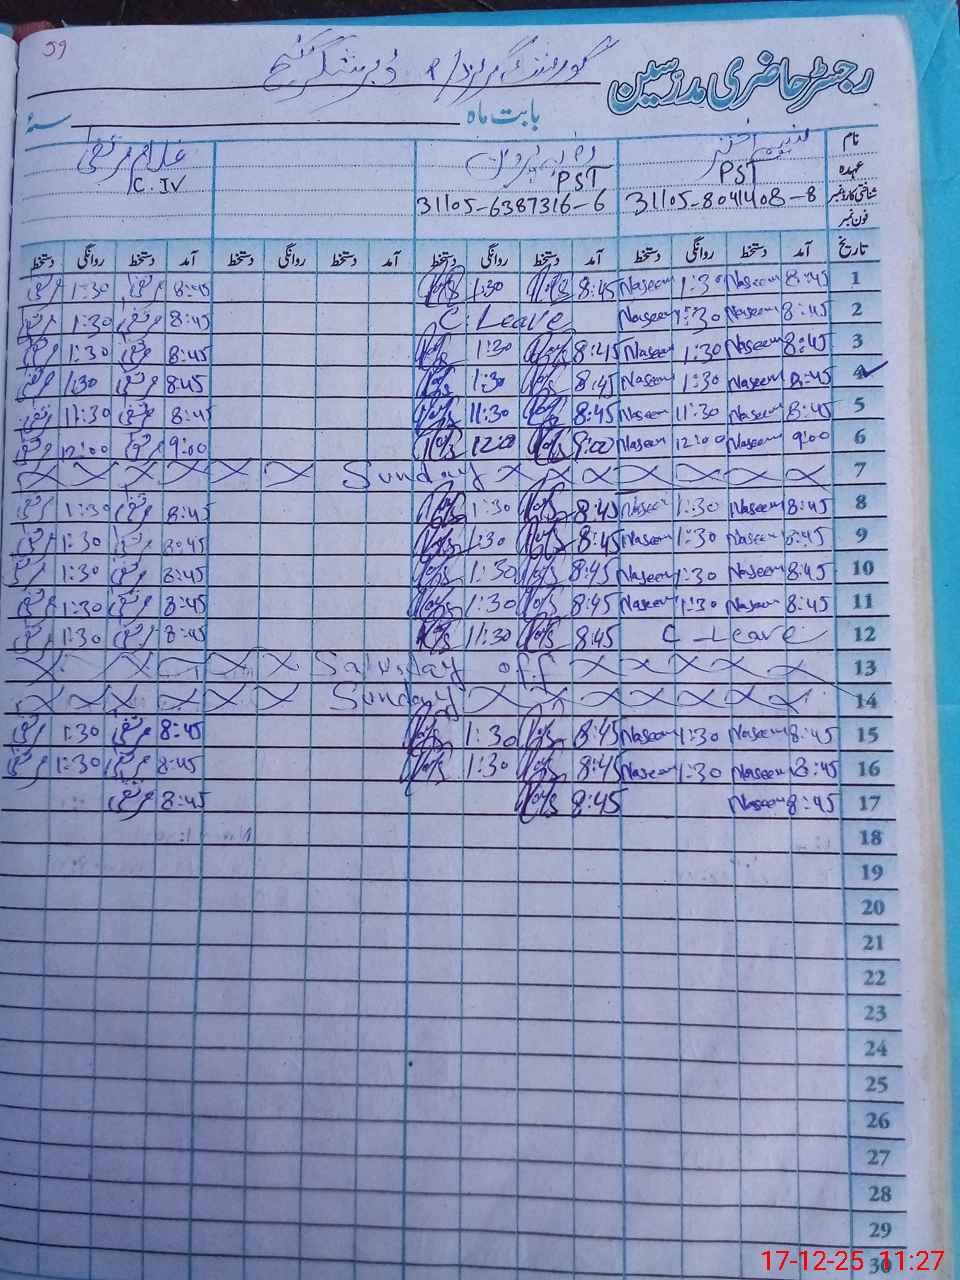 59
رجسٹر حاضری مدرسین
بابت ماہ سنہ
نام نسیم اختر غلام مرتضیٰ
عہدہ PST PST C.IV
شناختی کارڈ نمبر 31105-8041408-8 31105-6387316-6
فون نمبر
تاریخ آمد دستخط روانگی دستخط آمد دستخط روانگی دستخط آمد دستخط روانگی دستخط آمد دستخط روانگی دستخط
1 8:45 Naseem 1:30 Naseem 8:45 1:30 8:45 مرتضیٰ 1:30 مرتضیٰ
2 8:45 Naseem 1:30 Naseem C.Leave 8:45 مرتضیٰ 1:30 مرتضیٰ
3 8:45 Naseem 1:30 Naseem 8:45 1:30 8:45 مرتضیٰ 1:30 مرتضیٰ
4 8:45 Naseem 1:30 Naseem 8:45 1:30 8:45 مرتضیٰ 1:30 مرتضیٰ
5 8:45 Naseem 11:30 Naseem 8:45 11:30 8:45 مرتضیٰ 11:30 مرتضیٰ
6 9:00 Naseem 12:00 Naseem 9:00 12:00 9:00 مرتضیٰ 12:00 مرتضیٰ
7 Sunday
8 8:45 Naseem 1:30 Naseem 8:45 1:30 8:45 مرتضیٰ 1:30 مرتضیٰ
9 8:45 Naseem 1:30 Naseem 8:45 1:30 8:45 مرتضیٰ 1:30 مرتضیٰ
10 8:45 Naseem 1:30 Naseem 8:45 1:30 8:45 مرتضیٰ 1:30 مرتضیٰ
11 8:45 Naseem 1:30 Naseem 8:45 1:30 8:45 مرتضیٰ 1:30 مرتضیٰ
12 C-Leave 8:45 11:30 8:45 مرتضیٰ 11:30 مرتضیٰ
13 Saturday off
14 Sunday
15 8:45 Naseem 1:30 Naseem 8:45 1:30 8:45 مرتضیٰ 1:30 مرتضیٰ
16 8:45 Naseem 1:30 Naseem 8:45 1:30 8:45 مرتضیٰ 1:30 مرتضیٰ
17 8:45 Naseem 8:45 8:45 مرتضیٰ
18
19
20
21
22
23
24
25
26
27
28
29
30
17-12-25 11:27